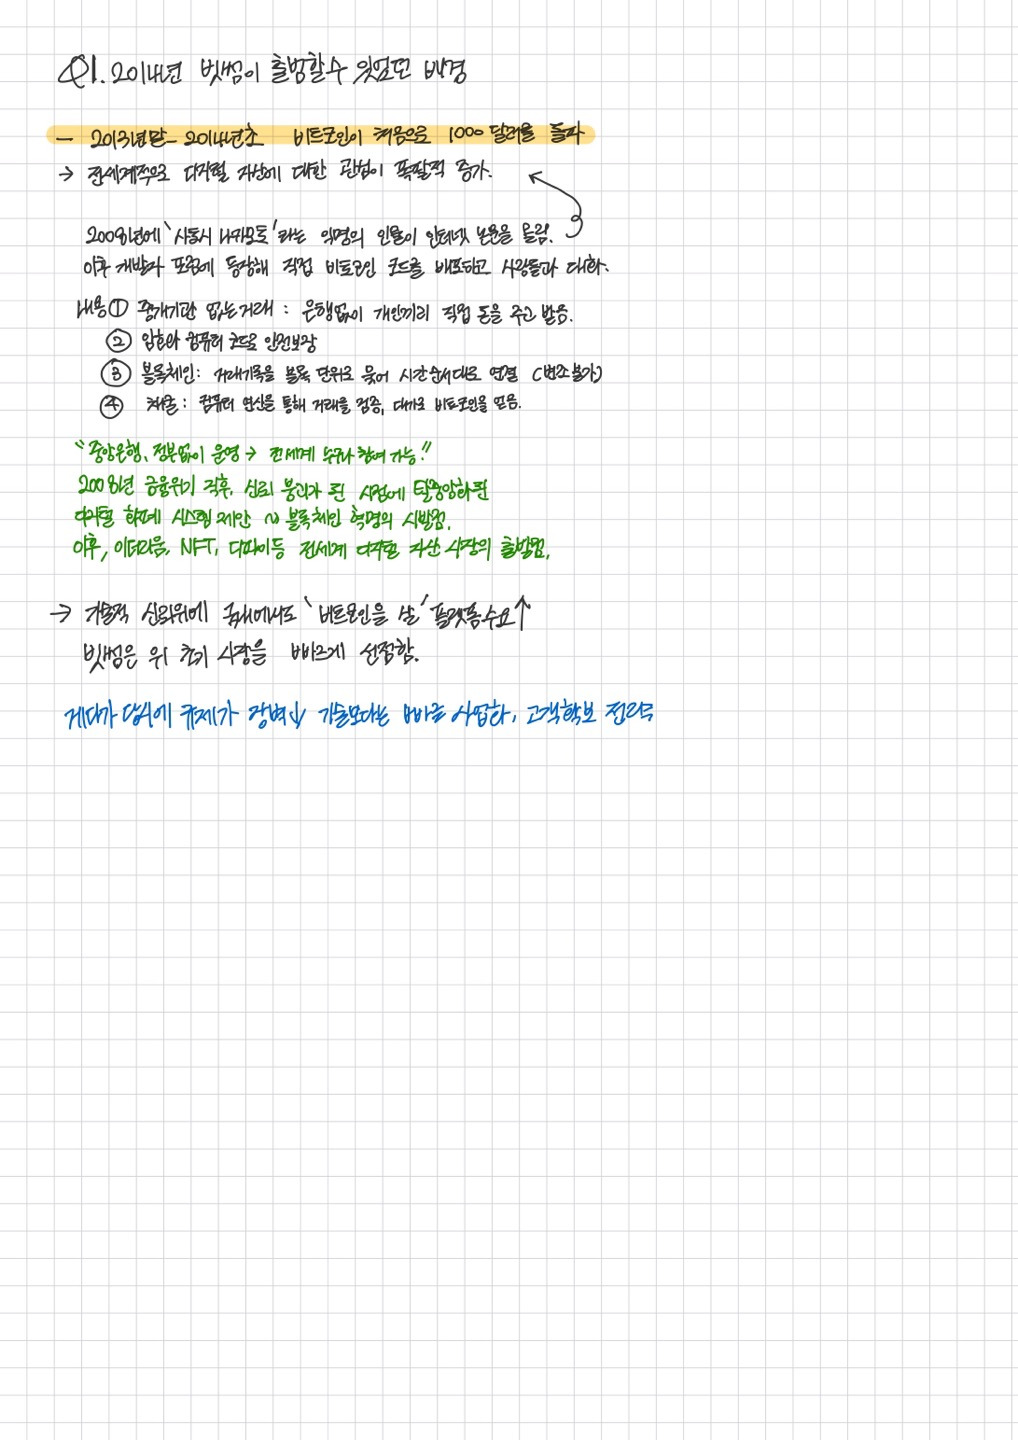 Q1. 2014년 빗썸이 출범할 수 있었던 배경
- 2013년말 - 2014년초 비트코인이 처음으로 1000달러를 돌파
→ 전세계적으로 디지털 자산에 대한 관심이 폭발적 증가.
2008년에 '사토시 나카모토'라는 익명의 인물이 인터넷 논문을 올림.
이후 개발자 포럼에 등장해 직접 비트코인 코드를 배포하고 사람들과 대화.
내용 ① 중개기관 없는 거래 : 은행없이 개인끼리 직접 돈을 주고 받음.
② 암호와 컴퓨터 코드로 안전보장
③ 블록체인 : 거래기록을 블록 단위로 묶어 시간순서대로 연결 (변조불가)
④ 채굴 : 컴퓨터 연산을 통해 거래를 검증, 대가로 비트코인을 얻음.
"중앙은행, 정부없이 운영 → 전세계 누구나 참여 가능!"
2008년 금융위기 직후, 신뢰 붕괴가 된 시점에 탈중앙화된
디지털 화폐 시스템 제안 ~ 블록체인 혁명의 시발점.
이후, 이더리움, NFT, 디파이등 전세계 디지털 자산 시장의 출발점.
→ 기술적 신뢰위에 국내에서도 '비트코인을 살' 플랫폼 수요↑
빗썸은 위 초기 시장을 빠르게 선점함.
게다가 당시에 규제가 장벽↓ 기술보다는 빠른 사업화, 고객확보 전략